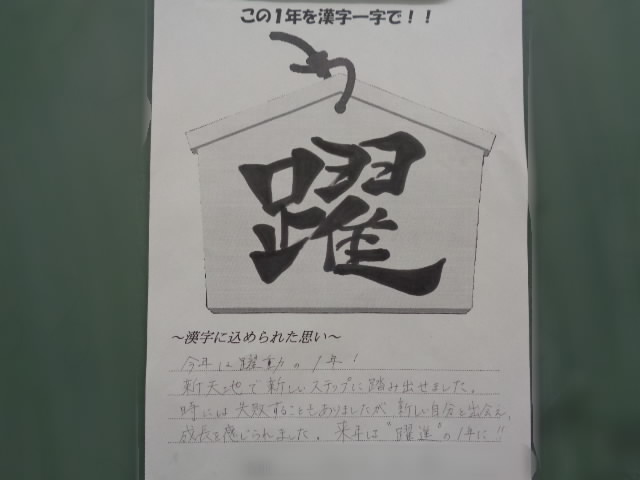 この1年を漢字一字で！！
躍
～漢字に込められた思い～
今年は躍動の1年！
新天地で新しいステップに踏み出せました。
時には失敗することもありましたが、新しい自分と出会え、
成長を感じられました。来年は"躍進"の1年に!!